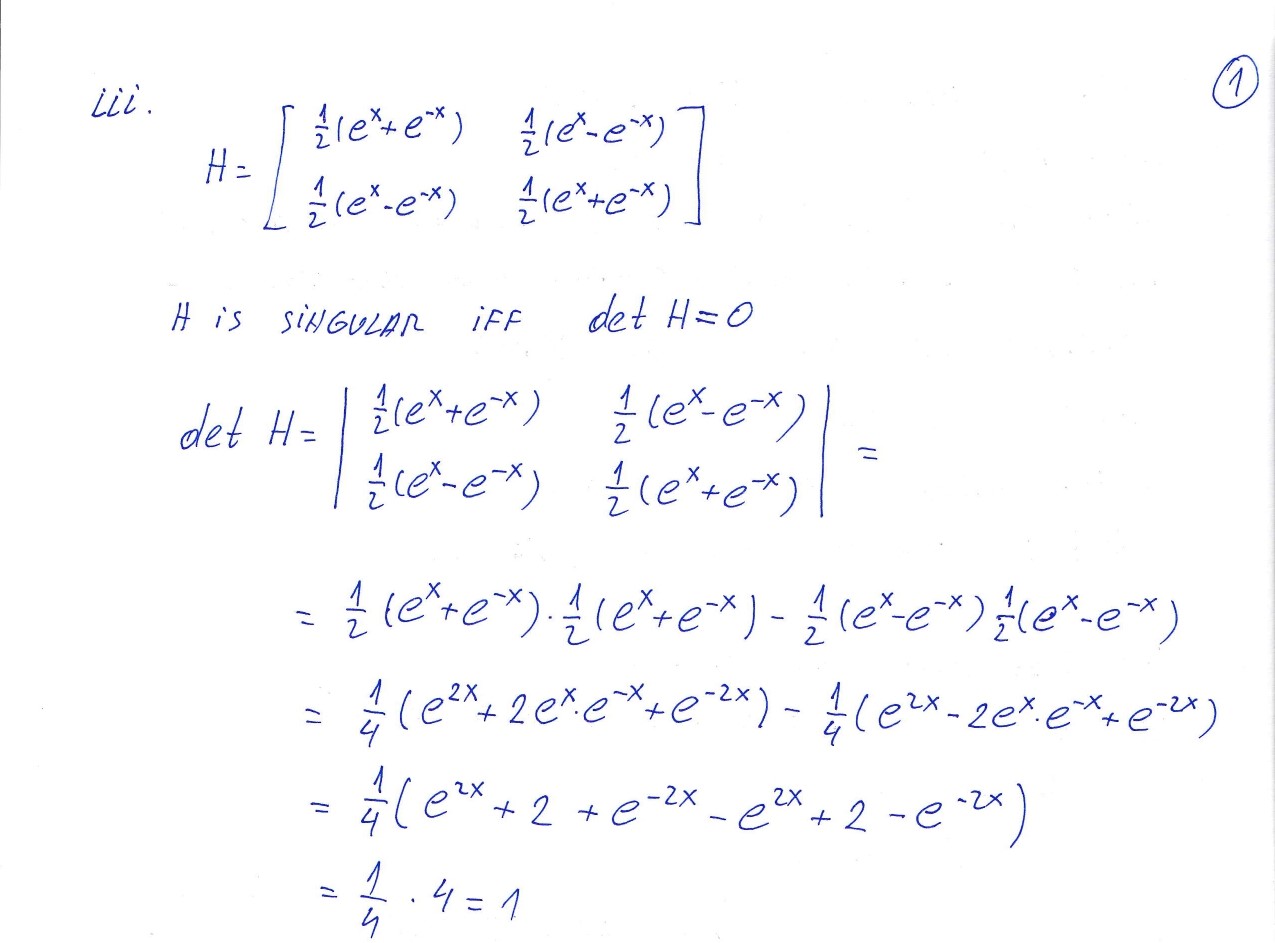 ①
iii.
H = [ ½(eˣ+e⁻ˣ) ½(eˣ-e⁻ˣ)
½(eˣ-e⁻ˣ) ½(eˣ+e⁻ˣ) ]
H is SINGULAR iFF det H=0
det H= | ½(eˣ+e⁻ˣ) ½(eˣ-e⁻ˣ)
½(eˣ-e⁻ˣ) ½(eˣ+e⁻ˣ) | =
= ½(eˣ+e⁻ˣ)·½(eˣ+e⁻ˣ) - ½(eˣ-e⁻ˣ) ½(eˣ-e⁻ˣ)
= ¼(e²ˣ+2eˣ·e⁻ˣ+e⁻²ˣ) - ¼(e²ˣ-2eˣ·e⁻ˣ+e⁻²ˣ)
= ¼(e²ˣ+2+e⁻²ˣ-e²ˣ+2-e⁻²ˣ)
= ¼ · 4 = 1